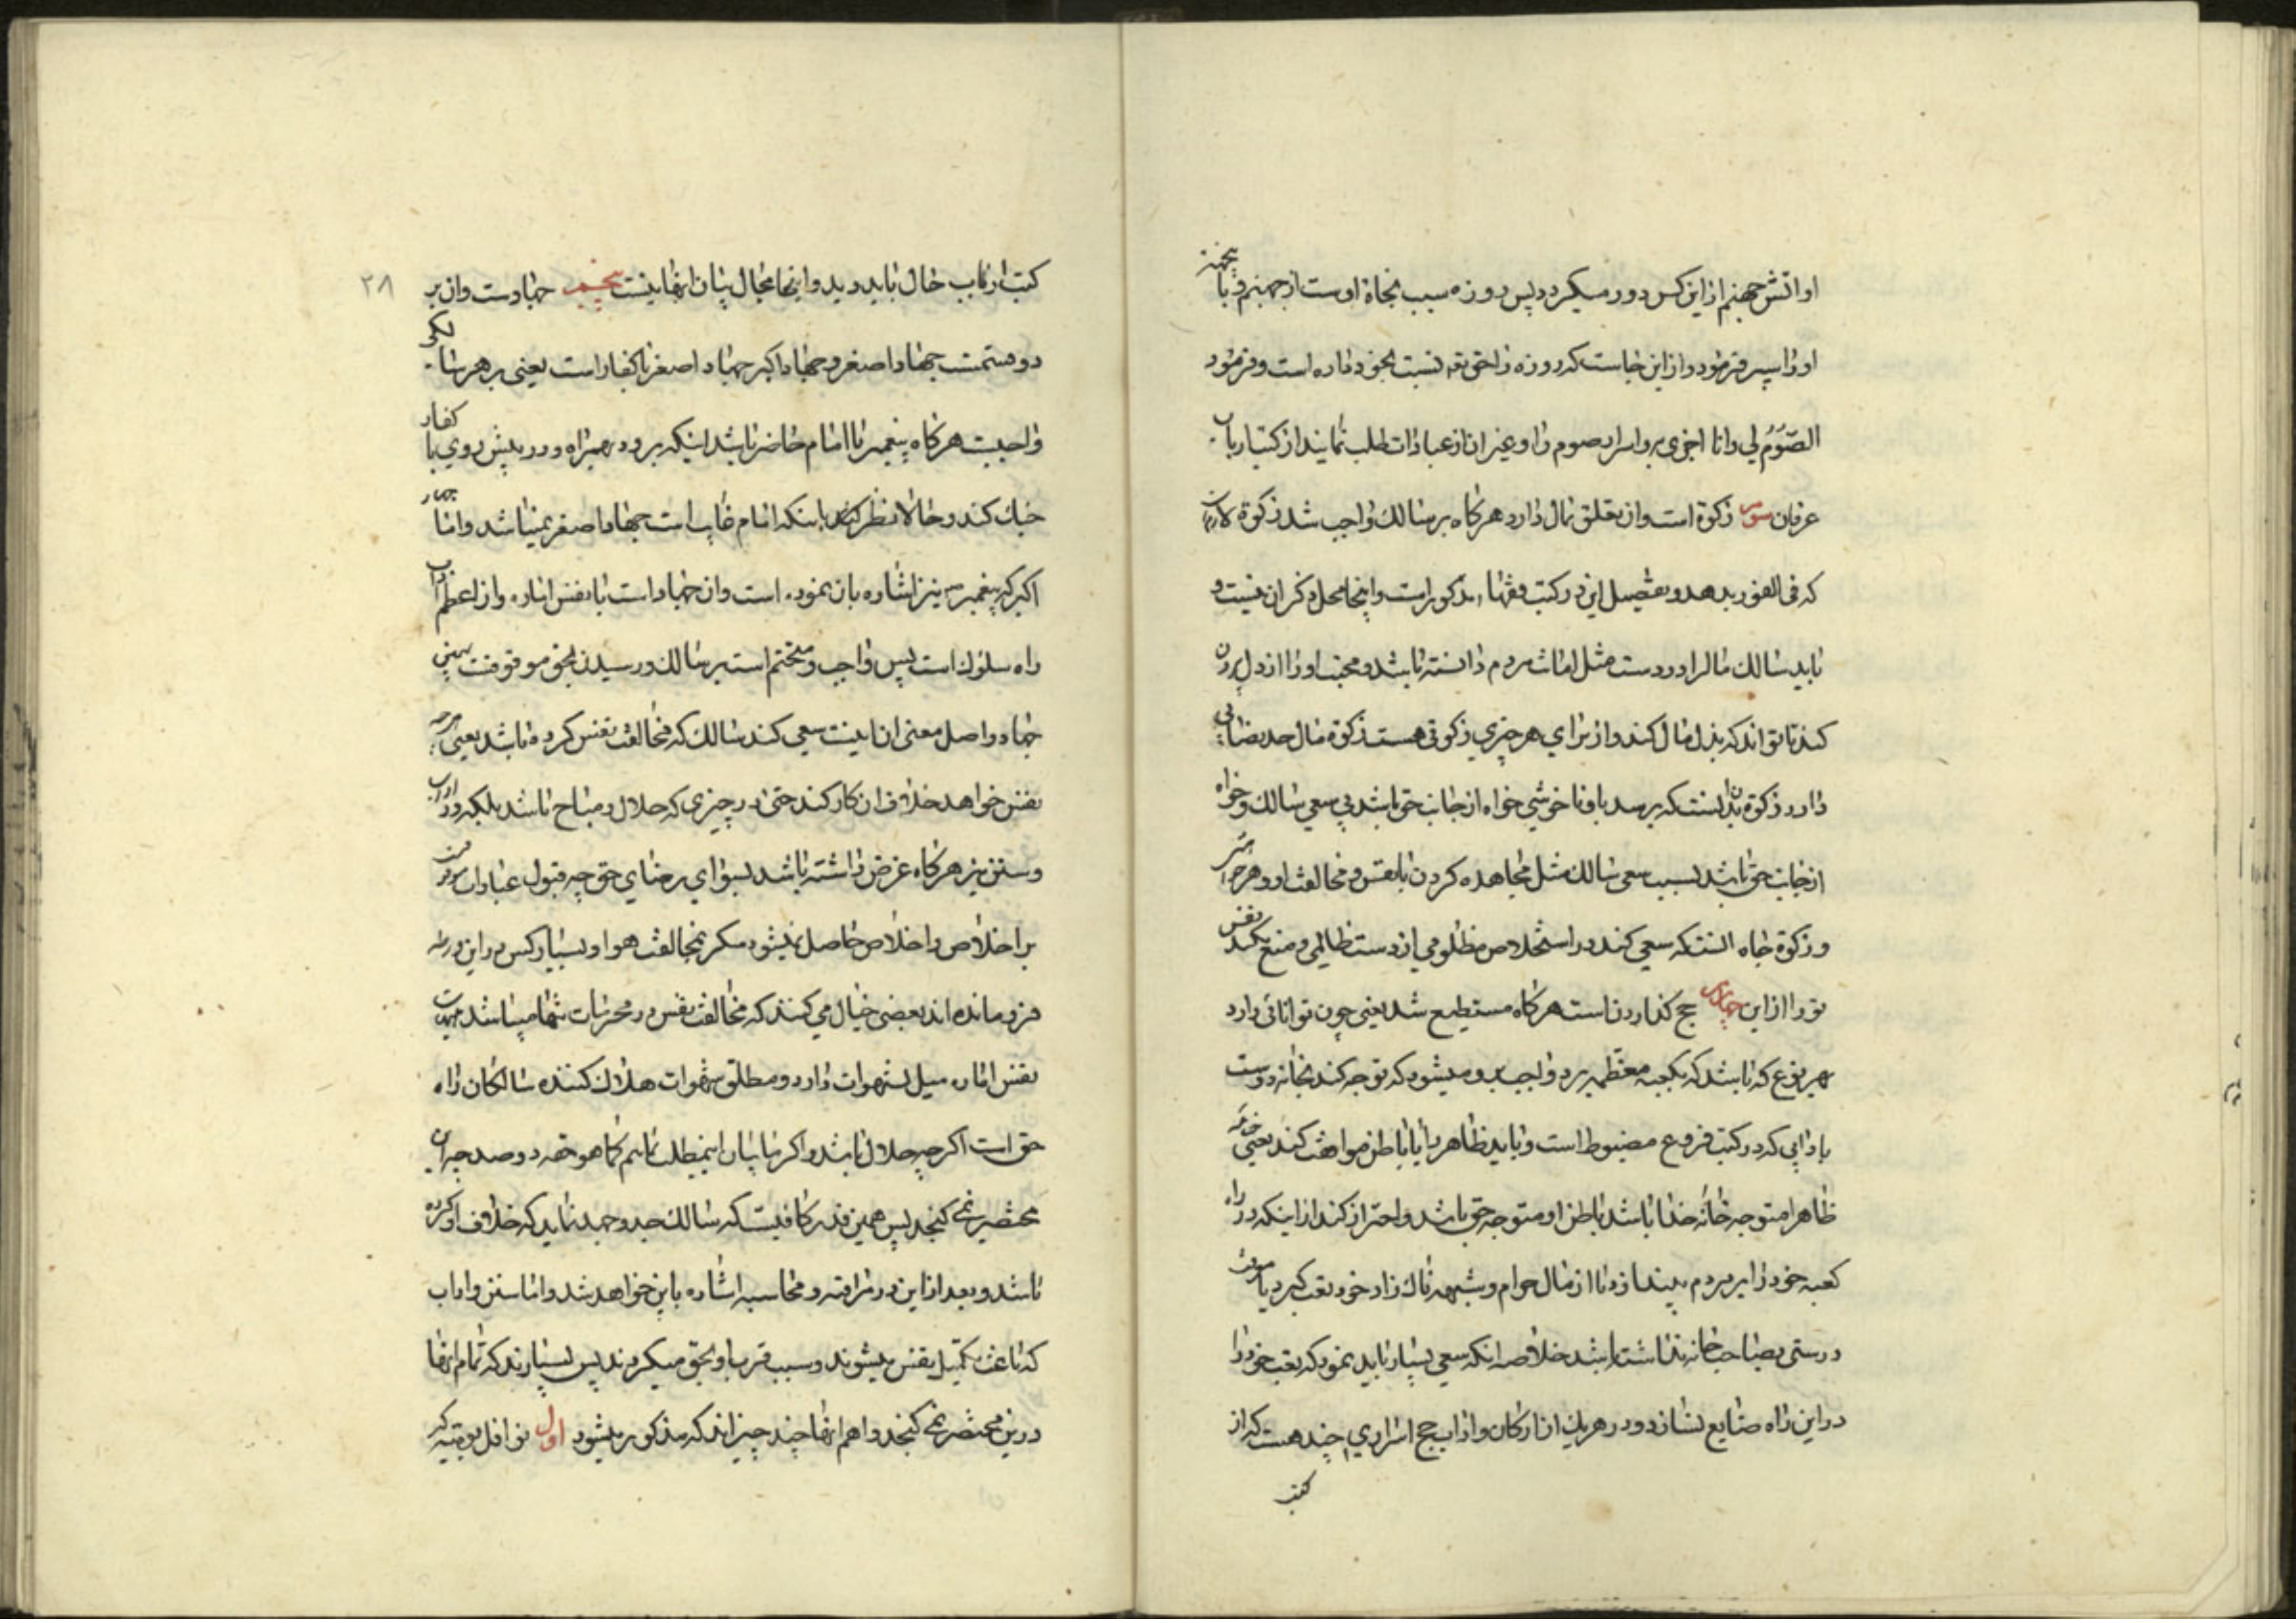 او اتش جهنم از این کس دور میکردد پس روزه سبب نجاة اوست از جهنم و باینجهة
او را سپر فرمود و از این جاست که روزه را حق تعه نسبت بخود داده است و فرمود
الصّومُ لی وانا اجزی به و اسرار صوم را و غیر ان از عبادات طلب نمایند از کتب ارباب
عرفان سوم زکوة است وان تعلق بمال دارد هرکاه بر سالک واجب شد زکوة لازم
که فی الفور بدهد و تفصیل این در کتب فقهاء مذکور است و اینجا محل ذکر ان نیست و
باید سالک مال را در دست مثل امانت مردم دانسته باشد و محبت او را از دل بیرون
کند تا تواند که بذل مال کند و از برای هر چیزی زکوتی هست زکوة مال حد نصابی
دارد زکوة بدن انستکه برسد باو ناخوشی خواه از جانب حق باشد بی سعی سالک و خواه
از جانب حق باشد بسبب سعی سالک مثل مجاهده کردن با نفس و مخالفت او و هرچه
و زکوة جاه انستکه سعی کند در استخلاص مظلومی از دست ظالمی و منع نکند نفس
تو را از این چهارم حج کذاردنست هرکاه مستطیع شد یعنی چون توانائی دارد
بهر نوع که باشد که بکعبه معظمه برد واجب بر او میشود که توجه کند بخانه دوست
بادابی که در کتب فروع مضبوط است و باید ظاهر را با باطن موافقت کند یعنی چنانچه
ظاهرا متوجه خانه خدا باشد باطن او متوجه حق باشد و احتراز کند از اینکه در راه
کعبه خود را بر مردم بیندازد یا از مال حرام و شبهه ناک زاد خود تعب کیرد یا معرفت
درستی بصاحب خانه نداشته باشد خلاصه انکه سعی بسیار باید نمود که تعب خود را
در این راه ضایع نسازد و در هریک از ارکان و اداب حج اسراری چند هست که از
کتب
کتب ارباب حال باید دید و اینجا مجال بیان انها نیست پنجم جهاد است وان بر
دو قسمت جهاد اصغر و جهاد اکبر جهاد اصغر با کفار است یعنی بر هر سالکی
واجبست هرکاه پیغمبر یا امام حاضر باشد اینکه برود همراه و در پیش روی با کفار
جنک کند و حالا نظر باینکه امام غایب است جهاد اصغر نمیباشد واما جهاد
اکبر که پیغمبر نیز اشاره بان نموده است وان جهاد است با نفس اماره و از اعظم اداب
راه سلوک است پس واجب و متحتم است بر سالک و رسیدن بحق موقوفست بهمین
جهاد و اصل معنی ان اینست سعی کند سالک که مخالفت نفس کرده باشد یعنی هرچه
نفس خواهد خلاف ان کار کند حتی در چیزی که حلال و مباح باشد بلکه در اداب
و سنن نیز هرکاه غرض داشته باشد بسوای رضای حق چه قبول عبادات موقوفست
بر اخلاص و اخلاص حاصل نمیشود مکر بمخالفت هوا و بسیار کس در این ورطه
فرو مانده اند بعضی خیال می کنند که مخالفت نفس در محرمات تنها میباشد
نفس اماره میل بشهوات دارد و مطلق شهوات هلاک کننده سالکان راه
حق است اکرچه حلال باشد و اکر بیان اینمطلب نمایم کما هو حقه در صد چه این
مختصر نمی کنجد پس همین قدر کافیست که سالک جد و جهد نماید که خلاف او کرده
باشد و بعد از این در مراقبه و محاسبه اشاره باین خواهد شد واما سنن و اداب
که باعث تکمیل نفس میشوند و سبب قرب او بحق میکردند پس بسیارند که تمام انها
درین مختصر نمی کنجد و اهم انها چند چیز اند که مذکور میشود اول نوافل یومیه که